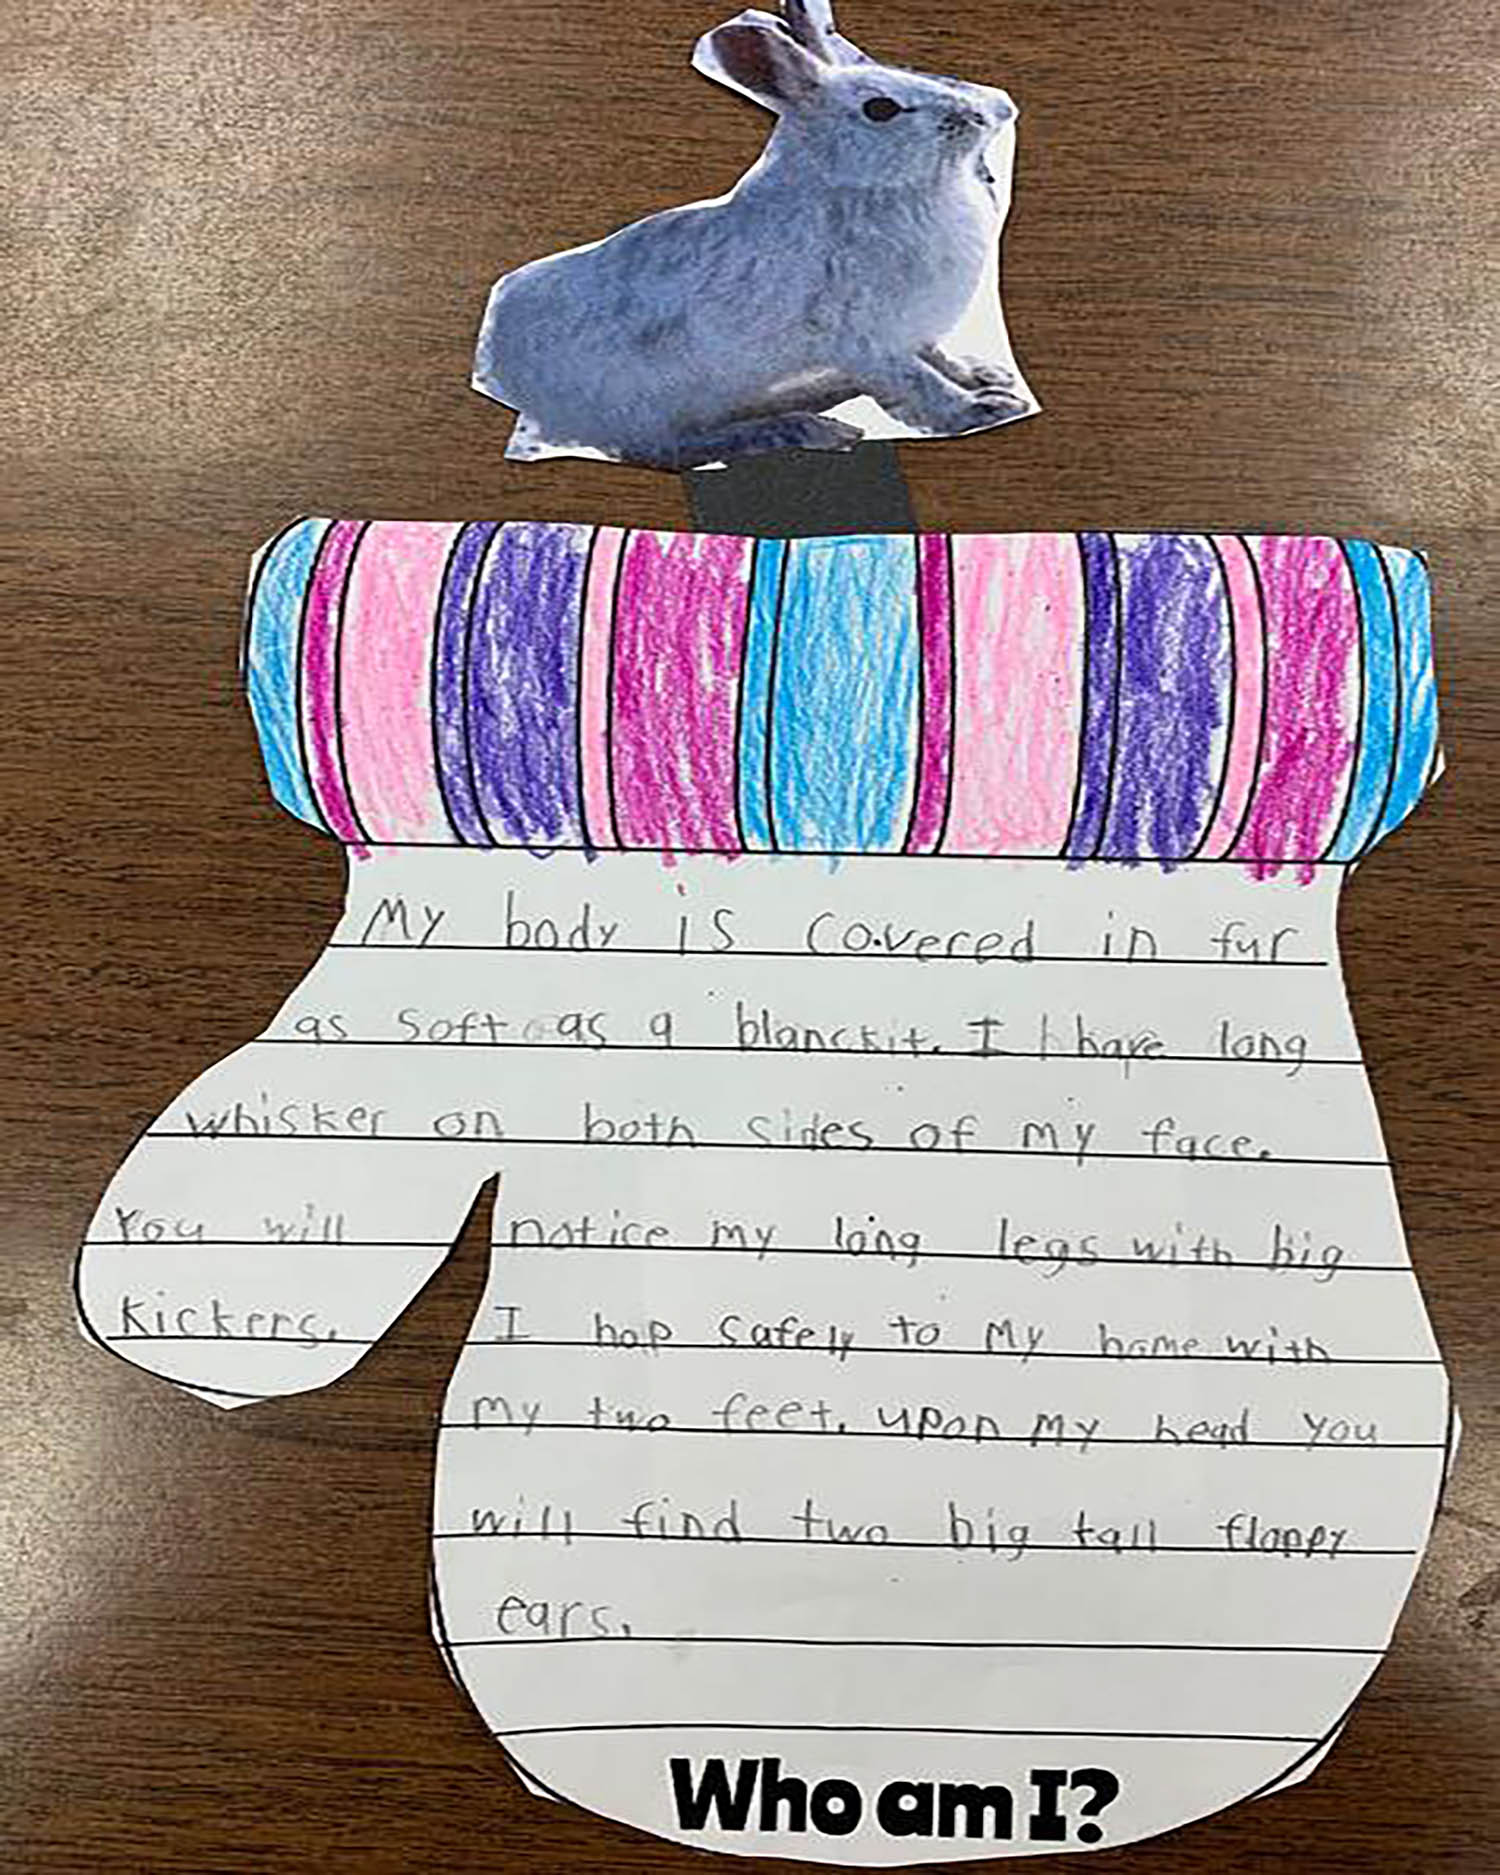 My body is covered in fur
as soft as a blanckit. I have long
whisker on both sides of my face.
You will notice my long legs with big
kickers. I hop safely to my home with
my two feet. upon my head you
will find two big tall floppy
ears.
Who am I?